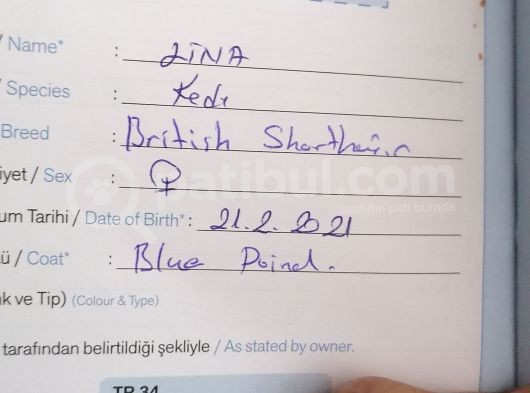 / Name* : LiNA
/ Species : Kedi
Breed : British Shorthair
iyet / Sex : ♀
um Tarihi / Date of Birth* : 21.2.2021
ü / Coat* : Blue Poind.
k ve Tip) (Colour & Type)
tarafından belirtildiği şekliyle / As stated by owner.
TR 34
patibul.com